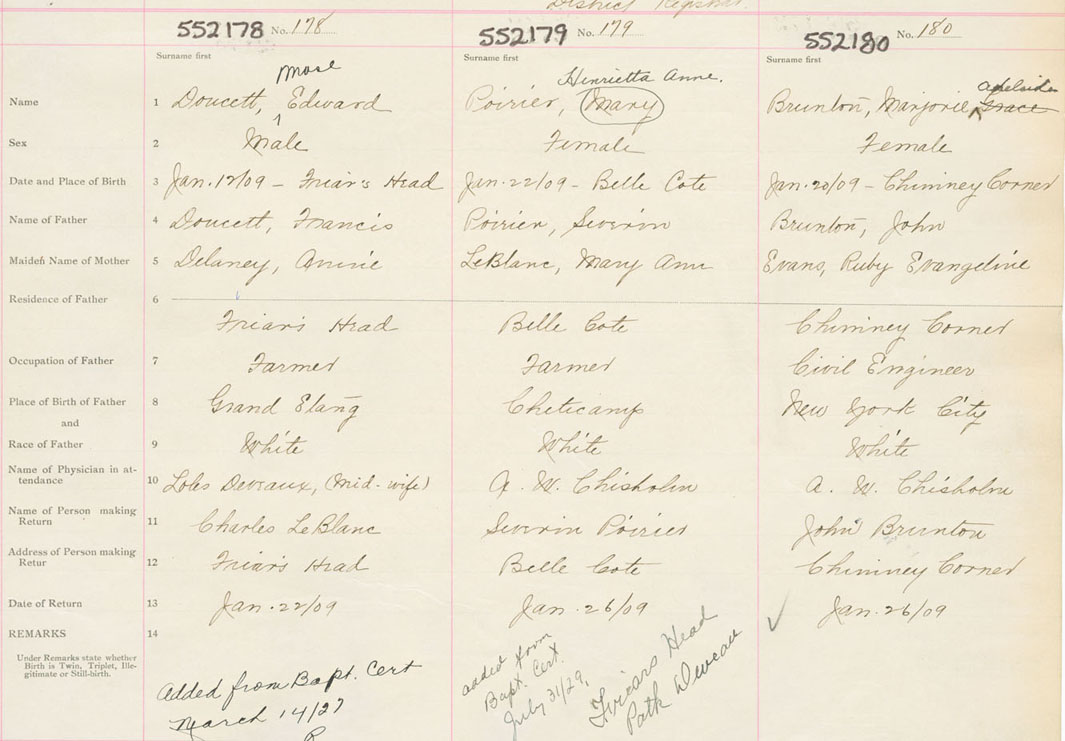 District Registrar.
552178 No. 178 552179 No. 179 552180 No. 180
Surname first Surname first Surname first
Mose Henrietta Anne. Adelaide
Name 1 Doucett, Edward Poirier, Mary Brunton, Marjorie, Grace
Sex 2 Male Female Female
Date and Place of Birth 3 Jan. 12/09 - Friar's Head Jan. 22/09 - Belle Cote Jan. 20/09 - Chimney Corner
Name of Father 4 Doucett, Francis Poirier, Severin Brunton, John
Maiden Name of Mother 5 Delaney, Annie LeBlanc, Mary Ann Evans, Ruby Evangeline
Residence of Father 6
Friar's Head Belle Cote Chimney Corner
Occupation of Father 7 Farmer Farmer Civil Engineer
Place of Birth of Father 8 Grand Etang Cheticamp New York City
and
Race of Father 9 White White White
Name of Physician in at-
tendance 10 Deveaux, (Mid-wife) A. W. Chisholm A. W. Chisholm
Name of Person making
Return 11 Charles LeBlanc Severin Poirier John Brunton
Address of Person making
Retur 12 Friar's Head Belle Cote Chimney Corner
Date of Return 13 Jan. 22/09 Jan. 26/09 Jan. 26/09
REMARKS 14
Under Remarks state whether
Birth is Twin, Triplet, Ille-
gitimate or Still-birth.
Added from Bapt. Cert
March 14/27
added from
Bapt. Cert.
July 31/29,
Friars Head
Path